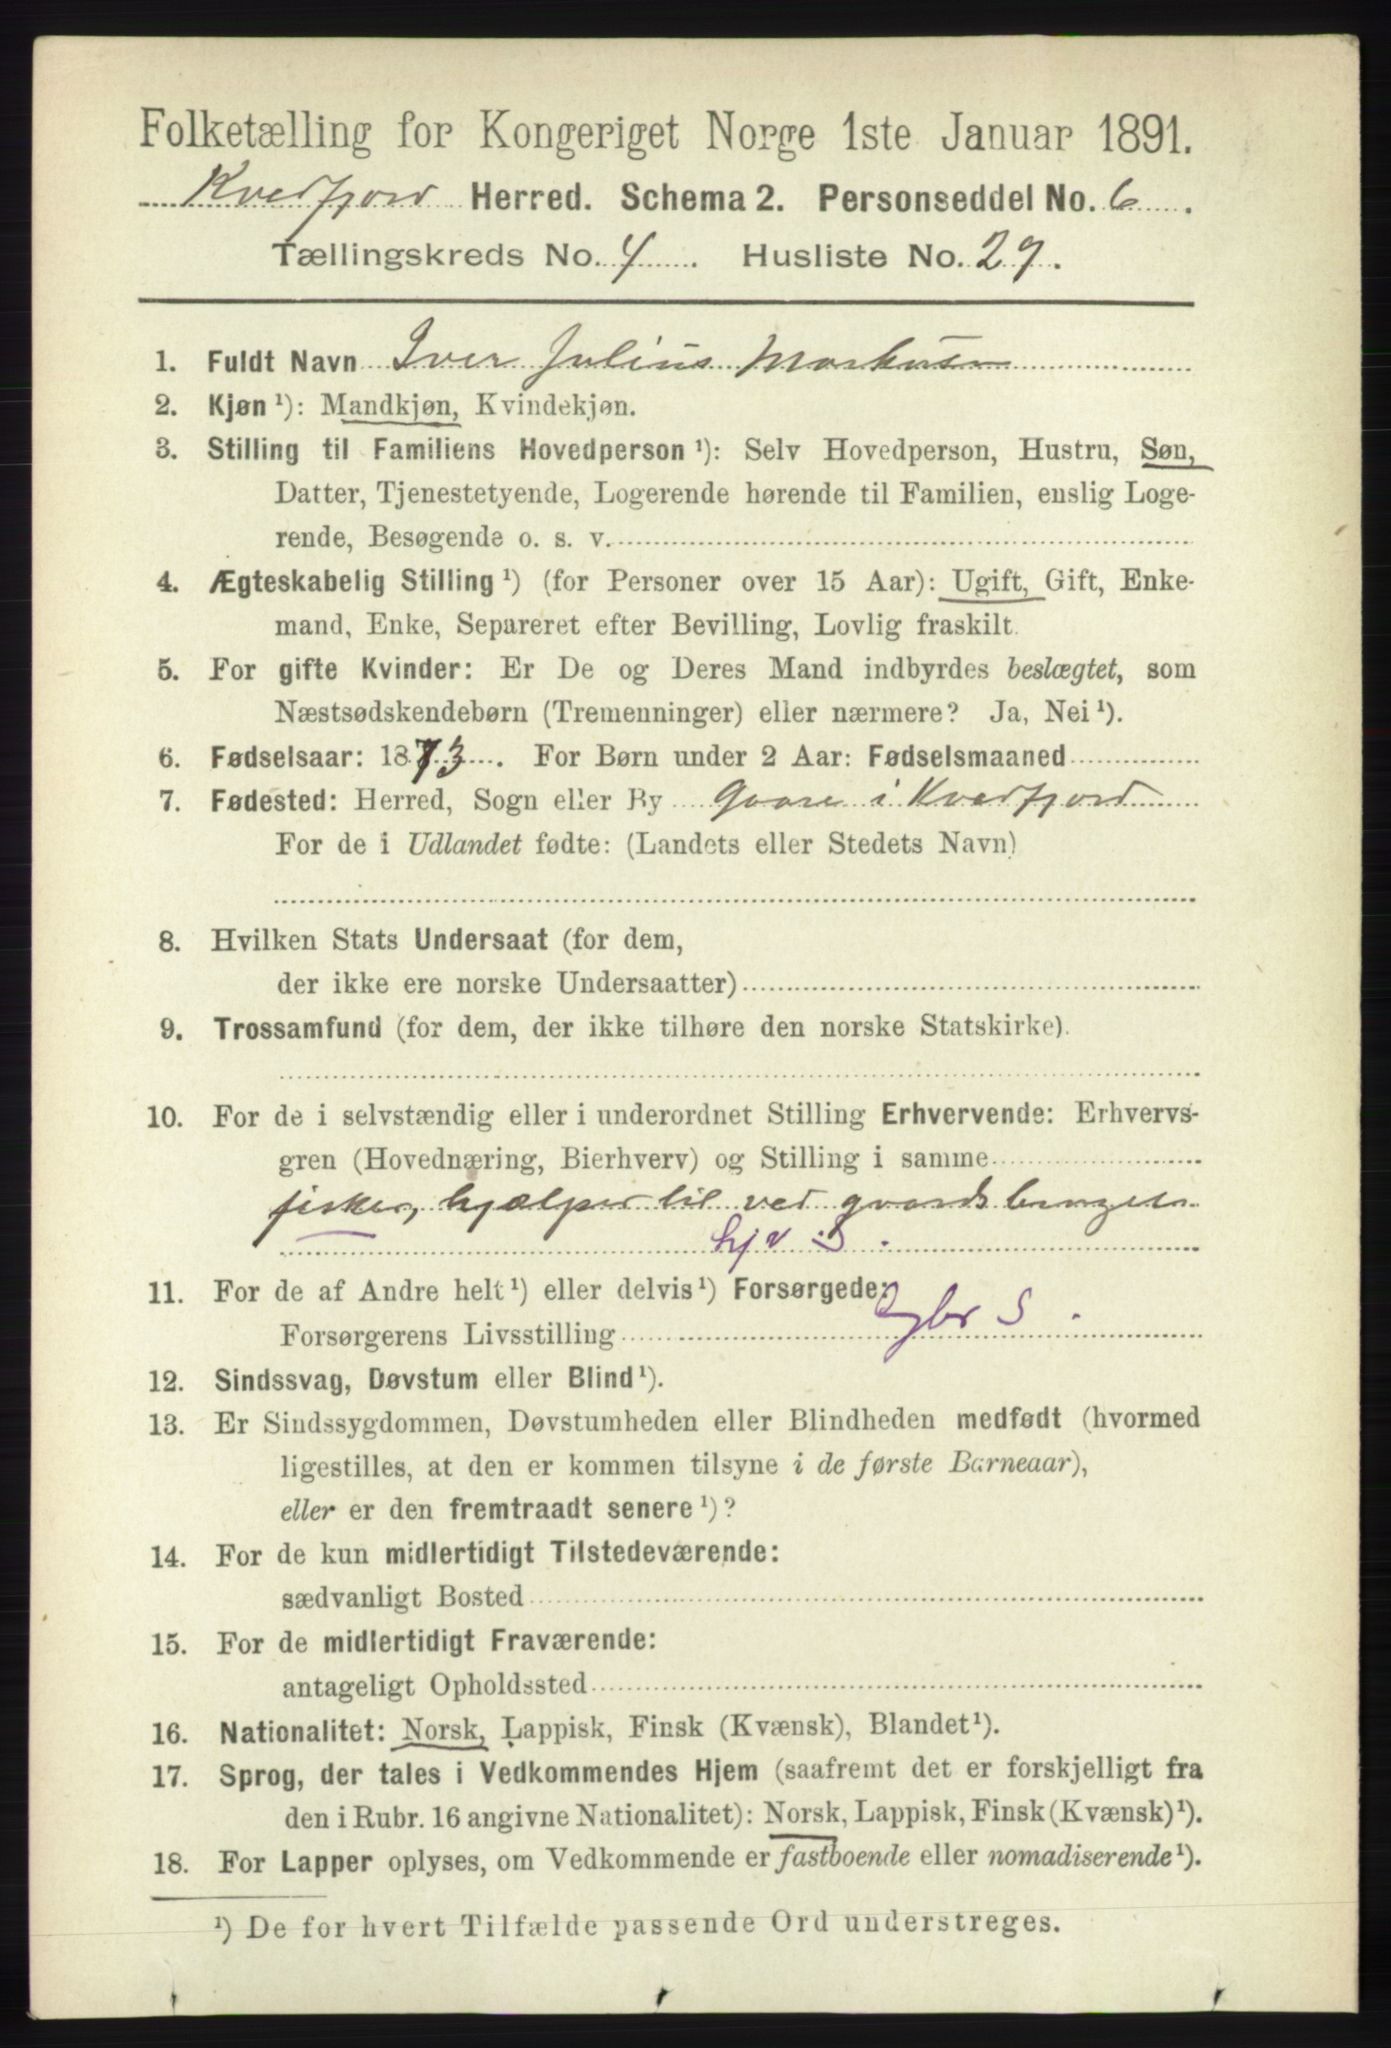 Folketælling for Kongeriget Norge 1ste Januar 1891.
Kvedfjord Herred. Schema 2. Personseddel No. 6.
Tællingskreds No. 4. Husliste No. 29.
1. Fuldt Navn Iver Julius Markusen
2. Kjøn ¹): Mandkjøn, Kvindekjøn.
3. Stilling til Familiens Hovedperson ¹): Selv Hovedperson, Hustru, Søn,
Datter, Tjenestetyende, Logerende hørende til Familien, enslig Loge-
rende, Besøgende o. s. v.
4. Ægteskabelig Stilling ¹) (for Personer over 15 Aar): Ugift, Gift, Enke-
mand, Enke, Separeret efter Bevilling, Lovlig fraskilt.
5. For gifte Kvinder: Er De og Deres Mand indbyrdes beslægtet, som
Næstsødskendebørn (Tremenninger) eller nærmere? Ja, Nei ¹).
6. Fødselsaar: 1873. For Børn under 2 Aar: Fødselsmaaned
7. Fødested: Herred, Sogn eller By Gaare i Kvedfjord
For de i Udlandet fødte: (Landets eller Stedets Navn)
8. Hvilken Stats Undersaat (for dem,
der ikke ere norske Undersaatter)
9. Trossamfund (for dem, der ikke tilhøre den norske Statskirke).
10. For de i selvstændig eller i underordnet Stilling Erhvervende: Erhvervs-
gren (Hovednæring, Bierhverv) og Stilling i samme
fisker, hjælper til ved gaardsbruget
hjv S.
11. For de af Andre helt ¹) eller delvis ¹) Forsørgede:
Forsørgerens Livsstilling gbr S.
12. Sindssvag, Døvstum eller Blind ¹).
13. Er Sindssygdommen, Døvstumheden eller Blindheden medfødt (hvormed
ligestilles, at den er kommen tilsyne i de første Barneaar),
eller er den fremtraadt senere ¹)?
14. For de kun midlertidigt Tilstedeværende:
sædvanligt Bosted
15. For de midlertidigt Fraværende:
antageligt Opholdssted
16. Nationalitet: Norsk, Lappisk, Finsk (Kvænsk), Blandet ¹).
17. Sprog, der tales i Vedkommendes Hjem (saafremt det er forskjelligt fra
den i Rubr. 16 angivne Nationalitet): Norsk, Lappisk, Finsk (Kvænsk) ¹).
18. For Lapper oplyses, om Vedkommende er fastboende eller nomadiserende ¹).
¹) De for hvert Tilfælde passende Ord understreges.